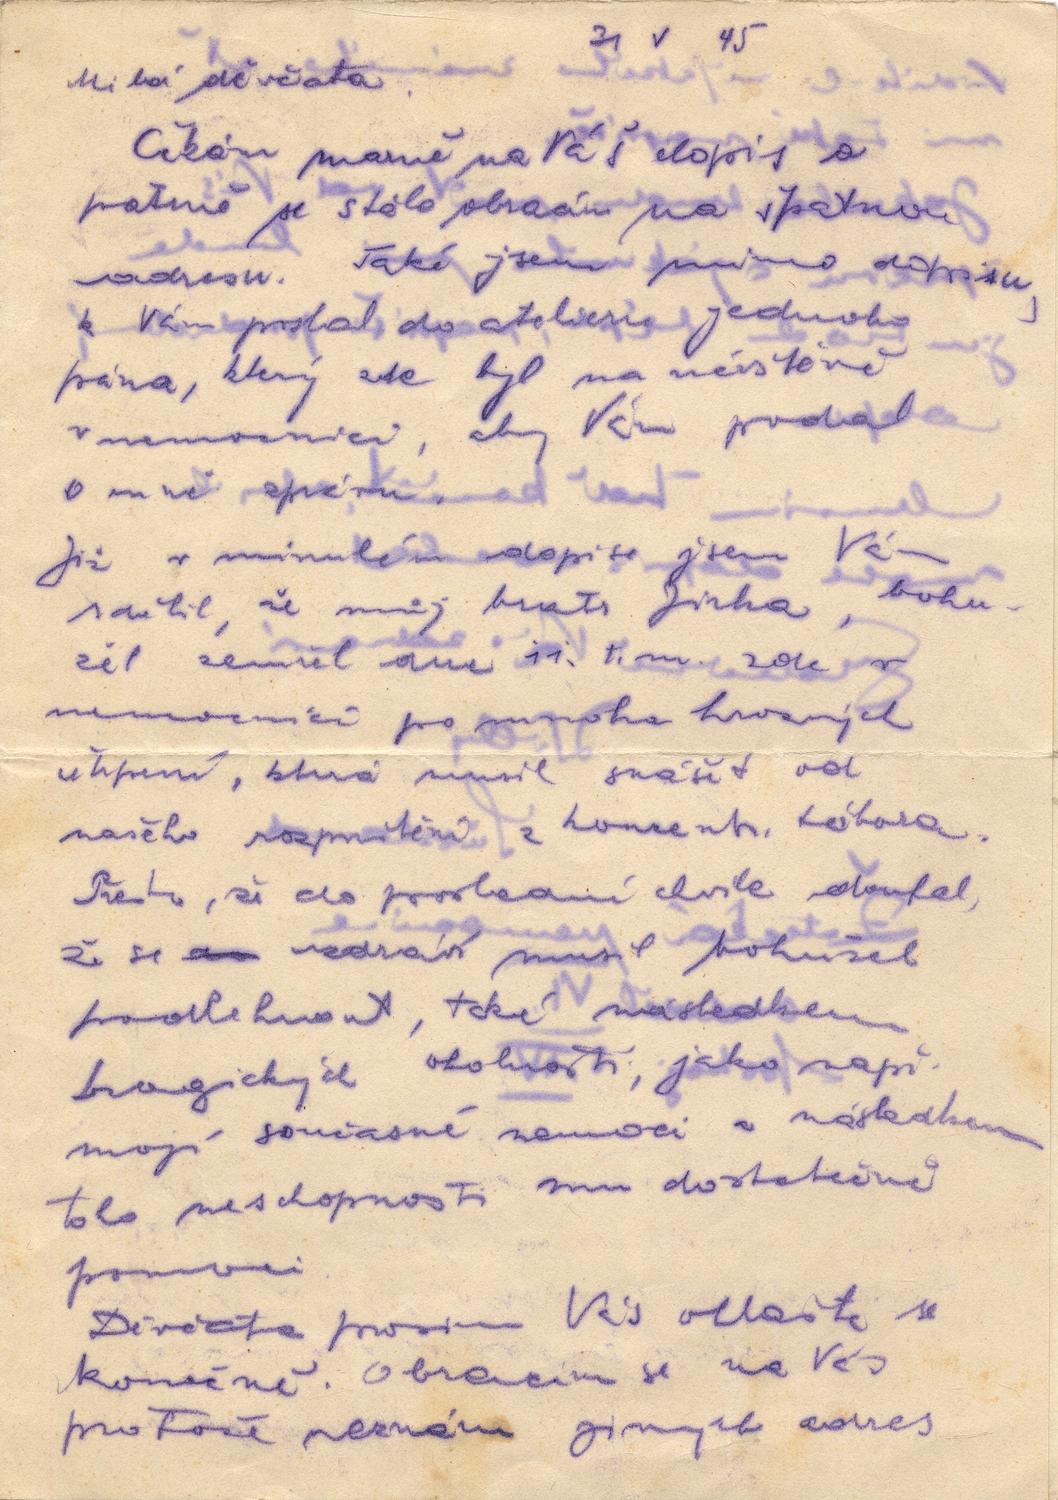 31 V 45
Milá děvčata,
Čekám marně na Váš dopis a
patrně se stále obracím na špatnou
adresu. Také jsem mimo dopisu,
k Vám poslal do atelieru jednoho
pána, který zde byl na návštěvě
v nemocnici, aby Vám podal
o mně zprávu.
Již v minulém dopise jsem Vám
sdělil, že můj bratr Jirka, bohu-
žel zemřel dne 11. t.m. zde v
nemocnici po mnoha hrozných
útrpení, která musil snášet od
našeho rozpuštění z koncentr. tábora.
Přesto, že do poslední chvíle doufal,
že se uzdraví musil bohužel
podlehnout, také následkem
tragických okolností, jako např.
mojí současné nemoci a následkem
toho neschopnosti mu dostatečně
pomoci.
Děvčata prosím Vás ohlašte se
konečně. Obracím se na Vás
protože neznám jiných adres